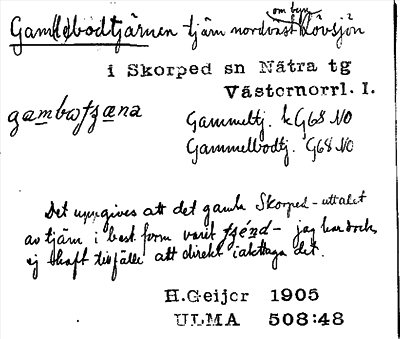 Gam(le)bodtjärnen tjärn nordväst om byn Lövsjön
i Skorped sn Nätra tg
Västernorrl. l.
Gammeltj. k G68 NO
Gammelbodtj. G68 NO
Det uppgives att det gamla Skorped-uttalet
av tjärn i best. form varit - jag har dock
ej haft tillfälle att direkt iakttaga det.
H.Geijer 1905
ULMA 508:48